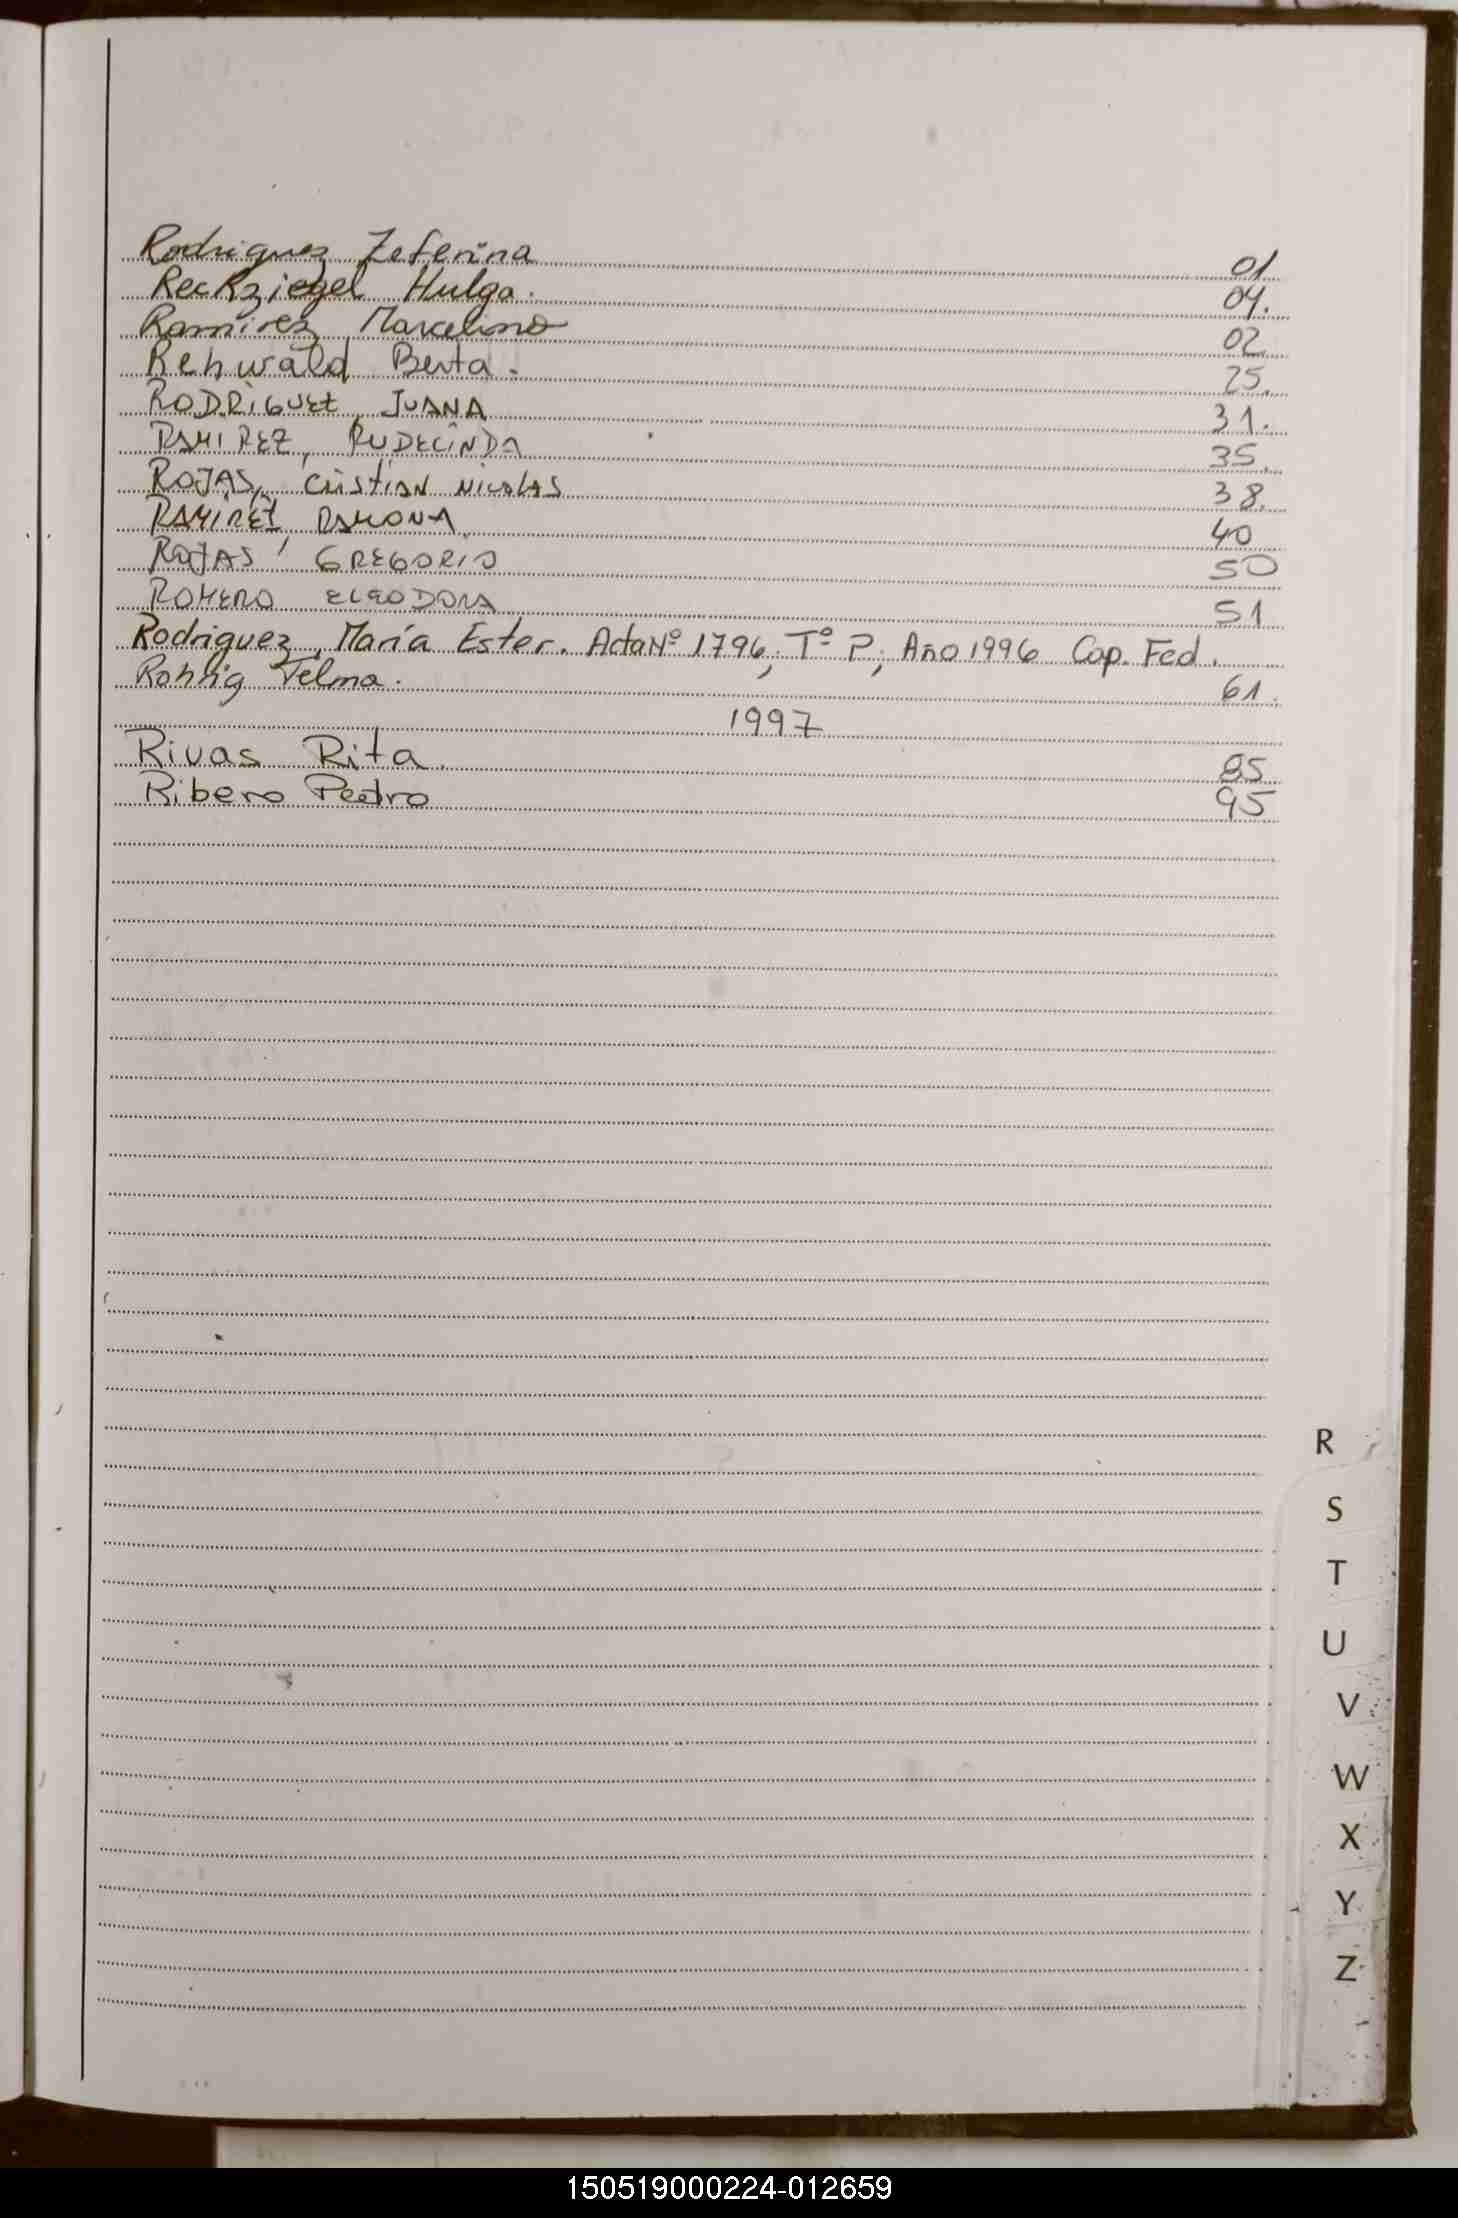 Rodriguez Zeferina 01
Reckziegel Hulga. 04.
Ramirez Marcelino 02
Rehwald Berta. 25.
RODRIGUEZ, JUANA 31.
RAMIREZ, RUDECINDA 35.
ROJAS, CRISTIAN NICOLAS 38.
RAMIREZ, RAMONA 40
ROJAS, GREGORIO 50
ROMERO ELEODORA 51
Rodriguez, María Ester. Acta Nº 1796, Tº P, Año 1996 Cap. Fed.
Rohrig Telma. 61.
1997
Rivas Rita. 85
Ribero Pedro 95
R
S
T
U
V
W
X
Y
Z
150519000224-012659